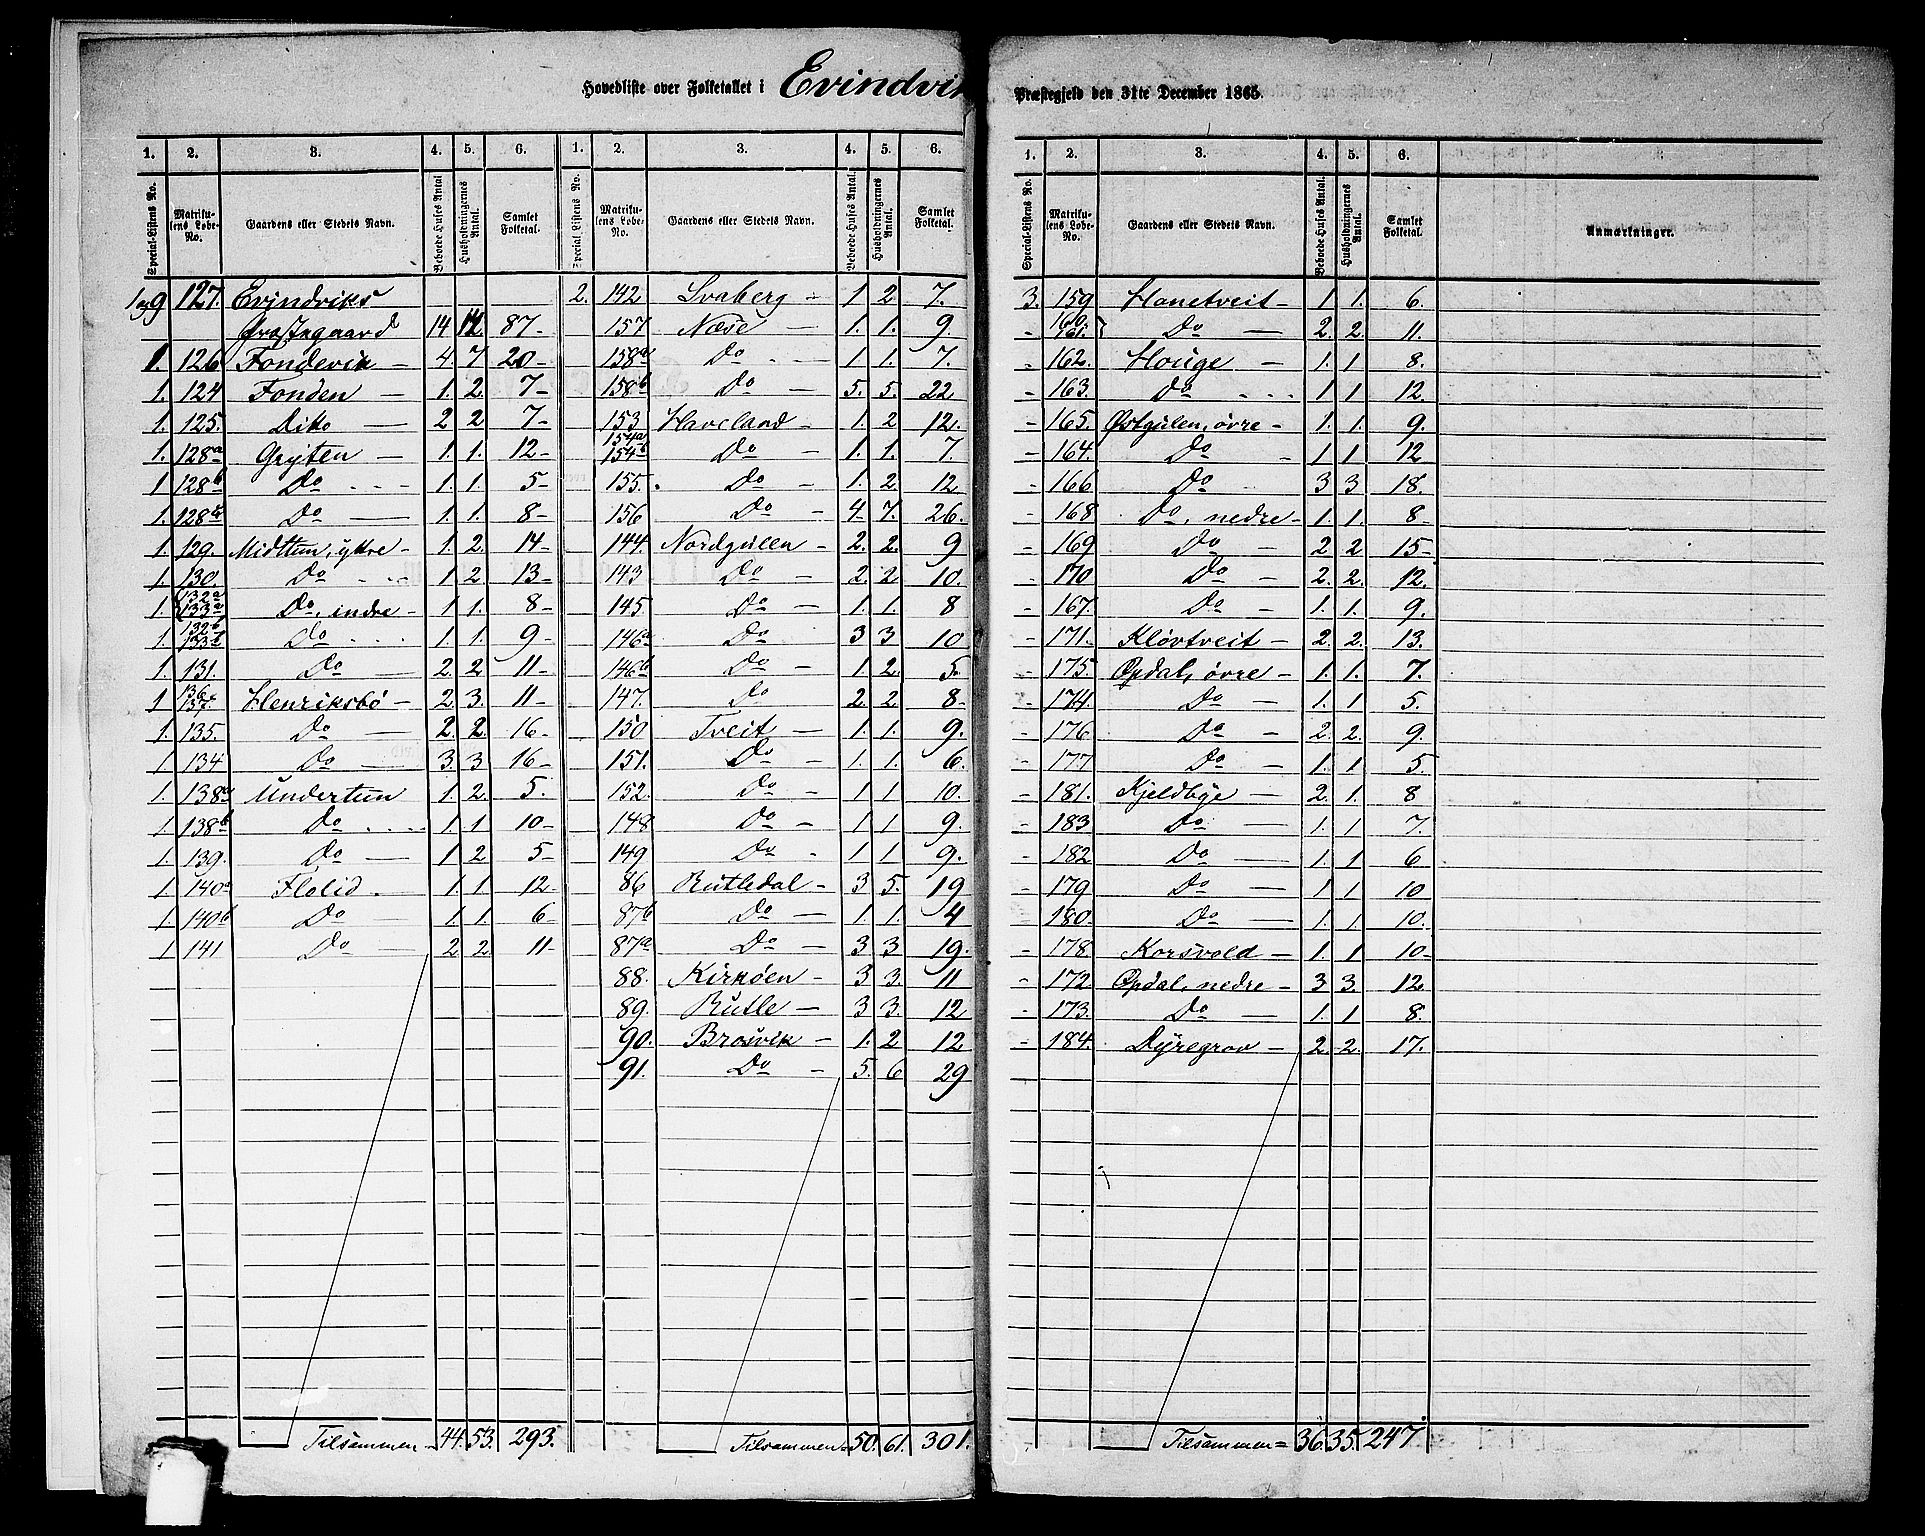 Hovedliste over Folketallet i Evindvik Præstegjeld den 31te December 1865.
1. 2. 3. 4. 5. 6. 1. 2. 3. 4. 5. 6.
Special-Listens No. Matrikulens Løbe-No. Gaardens eller Stedets Navn. Beboede Huses Antal Husholdningernes Antal. Samlet Folketal. Special-Listens No. Matrikulens Løbe-No. Gaardens eller Stedets Navn. Beboede Huses Antal. Husholdningernes Antal. Samlet Folketal.
1 og 9 127. Evindviks
Præstegaard 14 12 87-
1. 126 Fondevik - 4. 7 20-
1. 124 Fonden - 1. 2. 7-
1. 125. Dito - 2 2 7-
1. 128a Gryten - 1. 1. 12-
1 128b Do - 1. 1. 5-
1. 128c Do - 1. 1. 8-
1. 129. Midttun, yttre - 1. 2 14-
1. 130. Do - 1 2. 13-
1. 132a 133a Do, indre - 1 1. 8-
1. 132b 133b Do - 1. 1. 9-
1. 131. Do - 2. 2 11-
1 136 137 Henriksbö - 2. 3. 11-
1. 135. Do - 2. 2. 16-
1. 134 Do - 3. 3 16-
1. 138a Undertun 1. 2. 5.
1. 138b Do - 1. 1 10-
1. 139. Do - 1 2 5-
1. 140a Flolid. - 1. 1 12-
1. 140b Do - 1. 1. 6-
1 141 Do - 2 2. 11-
Tilsammen - 44. 53. 293.
2. 142 Svaberg - 1 2. 7.
157 Næse - 1. 1. 9.
158a Do - 1 1. 7.
158b Do - 5. 5. 22
153 Haveland - 1. 2 12.
154a 154b Do - 1. 1. 7.
155. Do - 1. 2 12
156 Do - 4. 7. 26.
144. Nordgulen - 2. 2. 9
143 Do - 2. 2 10.
145. Do - 1. 1. 8
146a Do 3 3 10
146b Do - 1. 2. 5.
147. Do 2. 2. 8-
150 Tveit - 1. 1. 9.
151. Do - 1. 1. 6.
152. Do - 1 1 10.
148 Do - 1 1. 9.
149. Do - 1 1 9.
86 Rutledal - 3 5. 19
87b Do - 1. 1. 4
87a Do - 3 3 19.
88. Kirköen - 3 3. 11
89. Rutle - 3 3. 12
90. Brosvik - 1. 2 12
91. Do - 5. 6 29
Tilsammen = 50. 61. 301.
1. 2. 3. 4. 5. 6.
Special-Listens No. Matrikulens Løbe-No. Gaardens eller Stedets Navn. Beboede Huses Antal. Husholdningernes Antal. Samlet Folketal. Anmærkninger.
3. 159. Hanetveit - 1. 1. 6.
- 160 161 Do - 2. 2. 11.
- 162. Houge - 1. 1 8.
- 163. Do - 1 1 12.
- 165. Østgulen, övre - 1. 1. 9.
- 164. Do - 1 1. 12
- 166 Do 3 3 18.
- 168 Do, nedre - 1. 1. 8-
- 169 Do - 2. 2 15-
- 170 Do - 2. 2. 12.
- 167. Do - 1. 1. 9.
- 171. Klövtveit - 2. 2. 13.
- 175. Opdal, övre - 1. 1. 7.
- 174. Do - 1. 1 5.
- 176 Do - 2. 2. 9.
- 177 Do - 1. 1 5.
- 181. Kjeldbye - 2. 1. 8
- 183 Do - 1. 1 7.
- 182 Do - 1. 1 6
- 179 Do - 1 1 10
- 180. Do - 1. 1. 10.
- 178. Korsvold - 1. 1 10-
- 172. Opdal, nedre - 3 3. 12
- 173. Do - 1. 1 8.
- 184. Dyregrov - 2. 2. 17.
Tilsammen = 36. 35. 247.